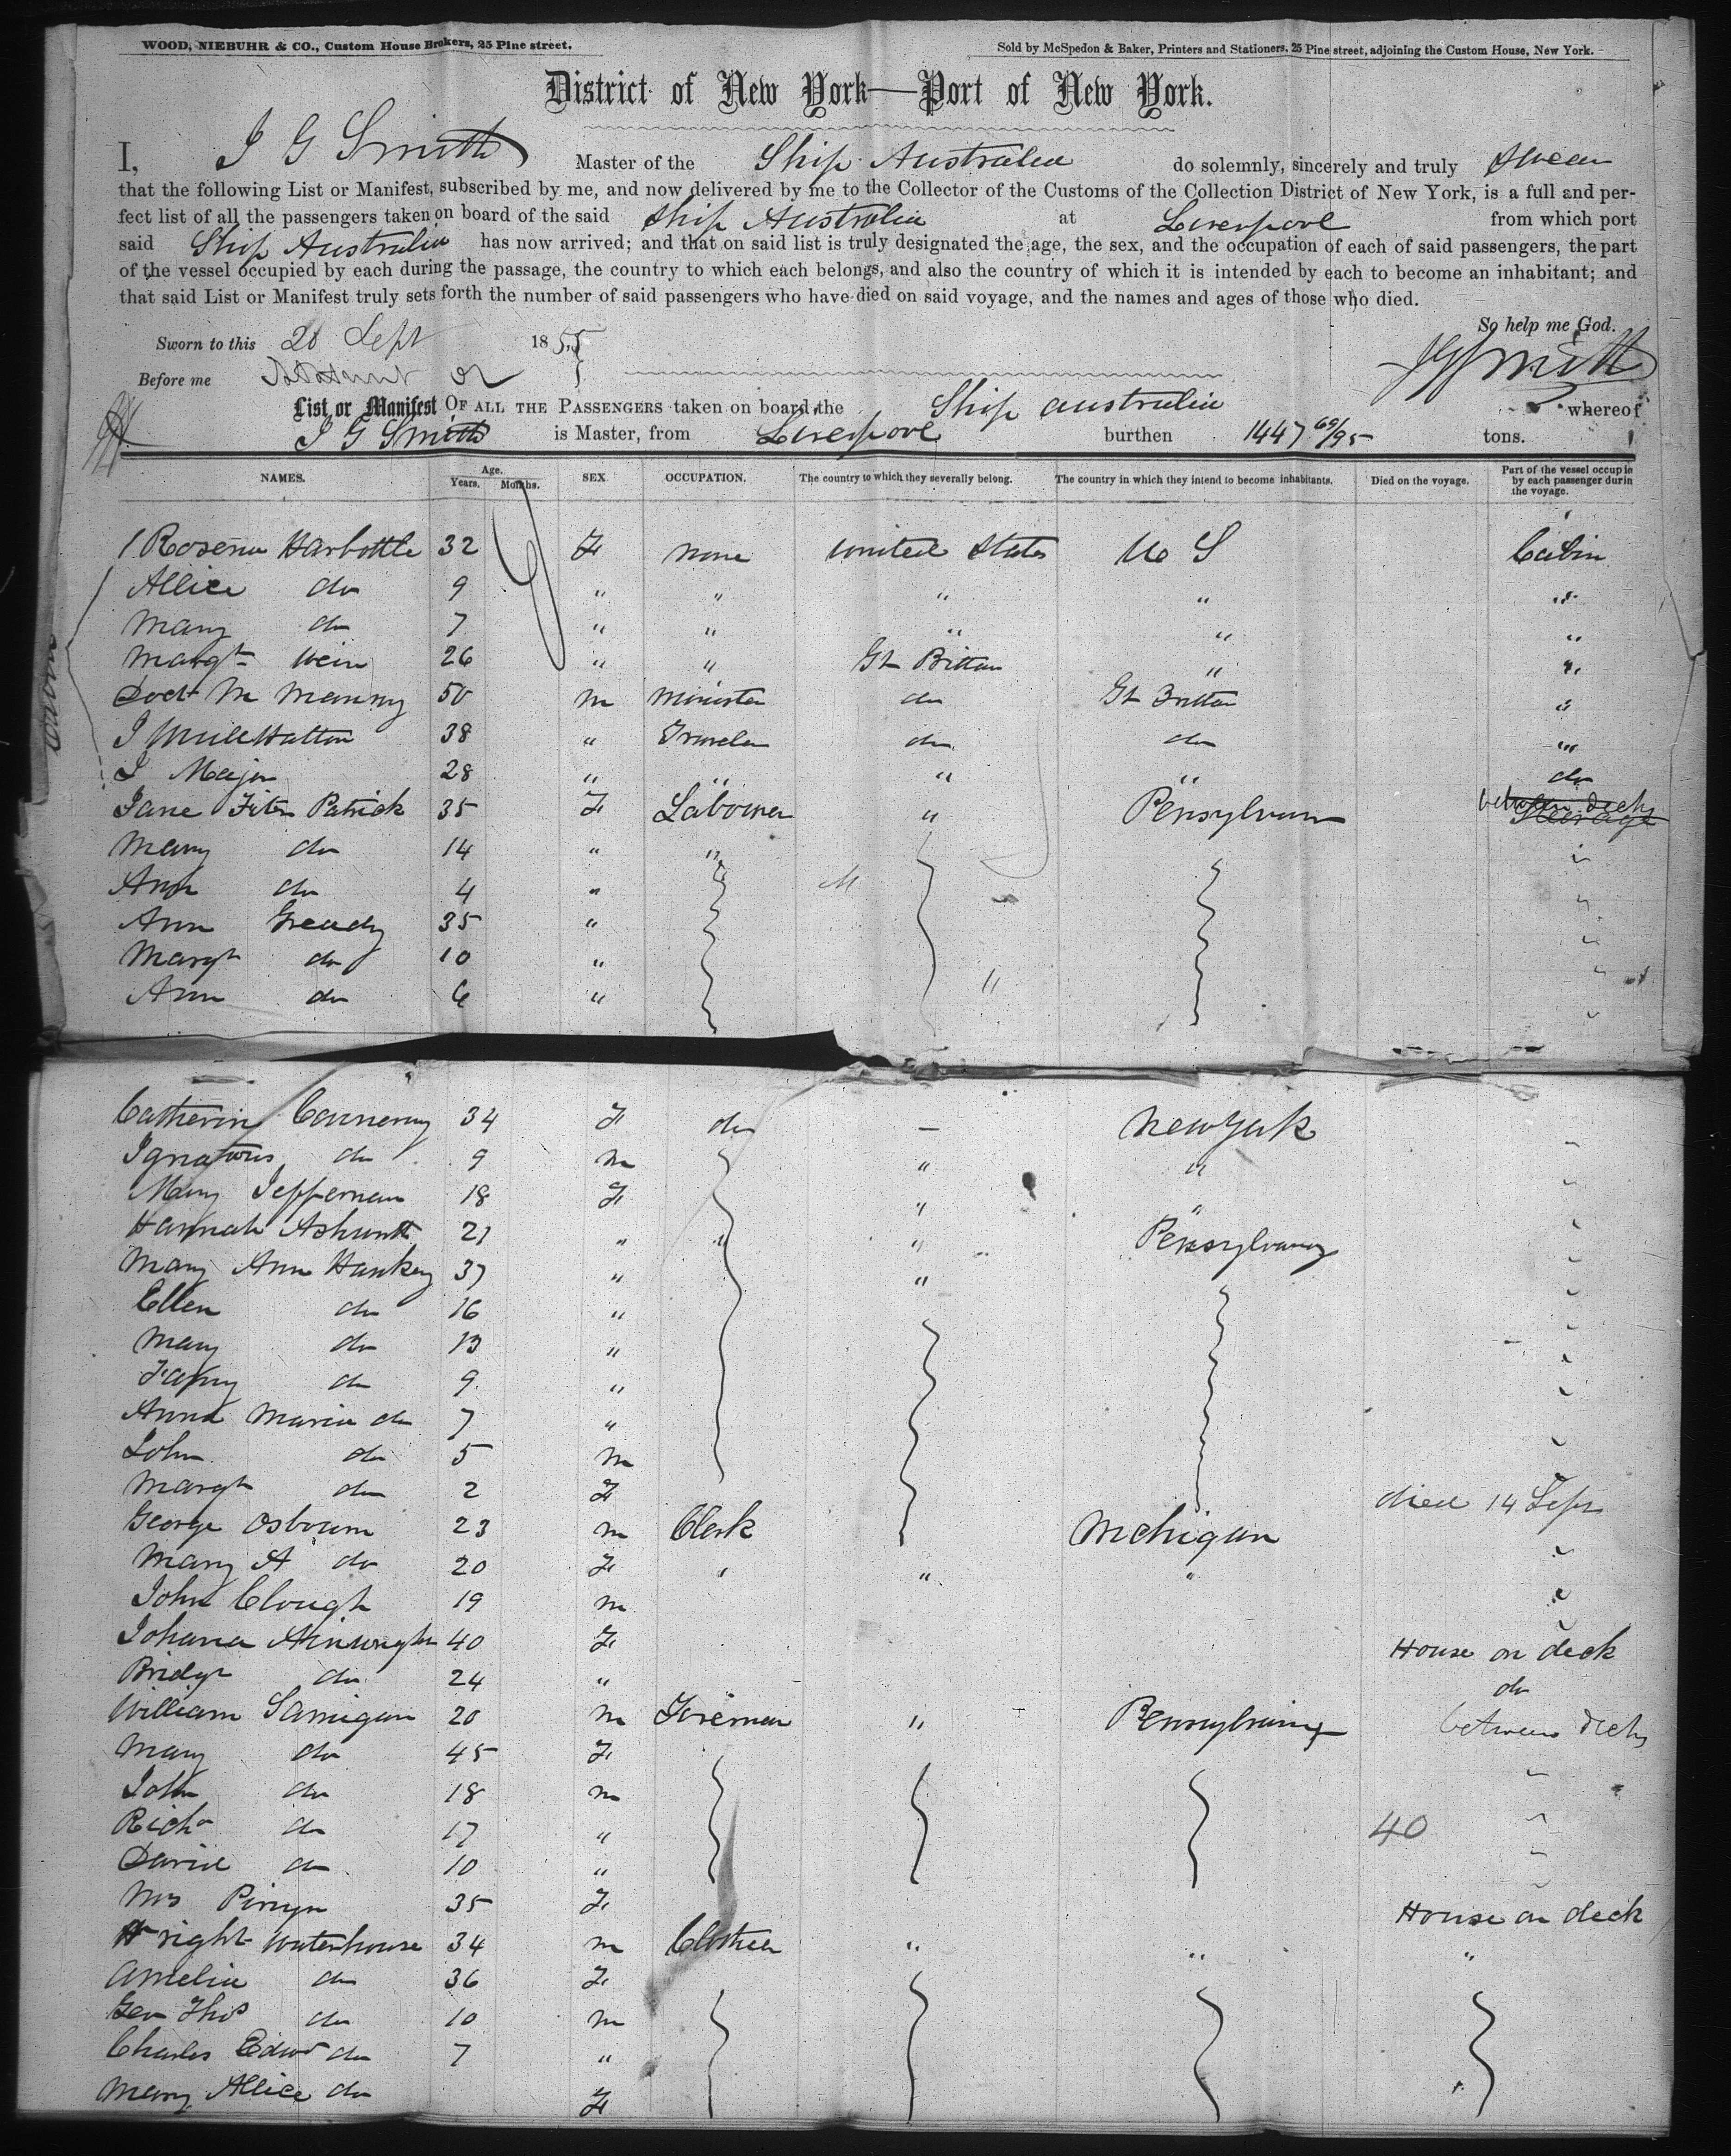 WOOD, NIEBUHR & CO., Custom House Brokers, 25 Pine street.
Sold by McSpedon & Baker, Printers and Stationers, 25 Pine street, adjoining the Custom House, New York.
District of New York—Port of New York.
I, J G Smith Master of the Ship Australia do solemnly, sincerely and truly swear
that the following List or Manifest, subscribed by me, and now delivered by me to the Collector of the Customs of the Collection District of New York, is a full and per-
fect list of all the passengers taken on board of the said Ship Australia at Liverpool from which port
said Ship Australia has now arrived; and that on said list is truly designated the age, the sex, and the occupation of each of said passengers, the part
of the vessel occupied by each during the passage, the country to which each belongs, and also the country of which it is intended by each to become an inhabitant; and
that said List or Manifest truly sets forth the number of said passengers who have died on said voyage, and the names and ages of those who died.
So help me God.
Sworn to this 20 Sept 1855
J G Smith
Before me
List or Manifest OF ALL THE PASSENGERS taken on board the Ship australia whereof
J G Smith is Master, from Liverpool burthen 1447 69/95 tons.
NAMES. Age. Years. Months. SEX OCCUPATION. The country to which they severally belong. The country in which they intend to become inhabitants. Died on the voyage. Part of the vessel occupie by each passenger durin the voyage.
1 Rosena Harbottle 32 F none united States U S Cabin
Allice do 9 " " " " "
Mary do 7 " " " " "
Margt 26 " " Gt Brittan " "
Doct M Manny 50 m Minister do Gt Brittan "
J Mullhatton 38 " Traveler do do "
J Major 28 " " " " do
Jane Fitz Patrick 35 F Labourer " Pensylvan between decks Steerage
Mary do 14 " " "
Ann do 4 "
Ann Gready 35 "
Margt do 10 "
Ann do 6 " "
Catherin 34 F do New York
Ignatius do 9 m " "
Mary Jeffernan 18 F " "
Hannah 21 " " " Pensylvany
Mary Ann Hankey 37 " "
Ellen do 16 "
Mary do 13 "
Fanny do 9 "
Anna Maria do 7 "
John do 5 m
Margt do 2 F died 14 Sept
George Osbourn 23 m Clerk Michigan
Mary A do 20 F " " "
John Clough 19 m
Johana 40 F House on deck
Bridgt do 24 " do
William 20 m Foreman " Pennsylvany between decks
Mary do 45 F
John do 18 m
Richd do 17 " 40
David do 10 "
Mrs 35 F House on deck
Wright Waterhouse 34 m Clothier " " "
Amelia do 36 F
Geo Thos do 10 m
Charles Edwd do 7 "
Mary Allice do F